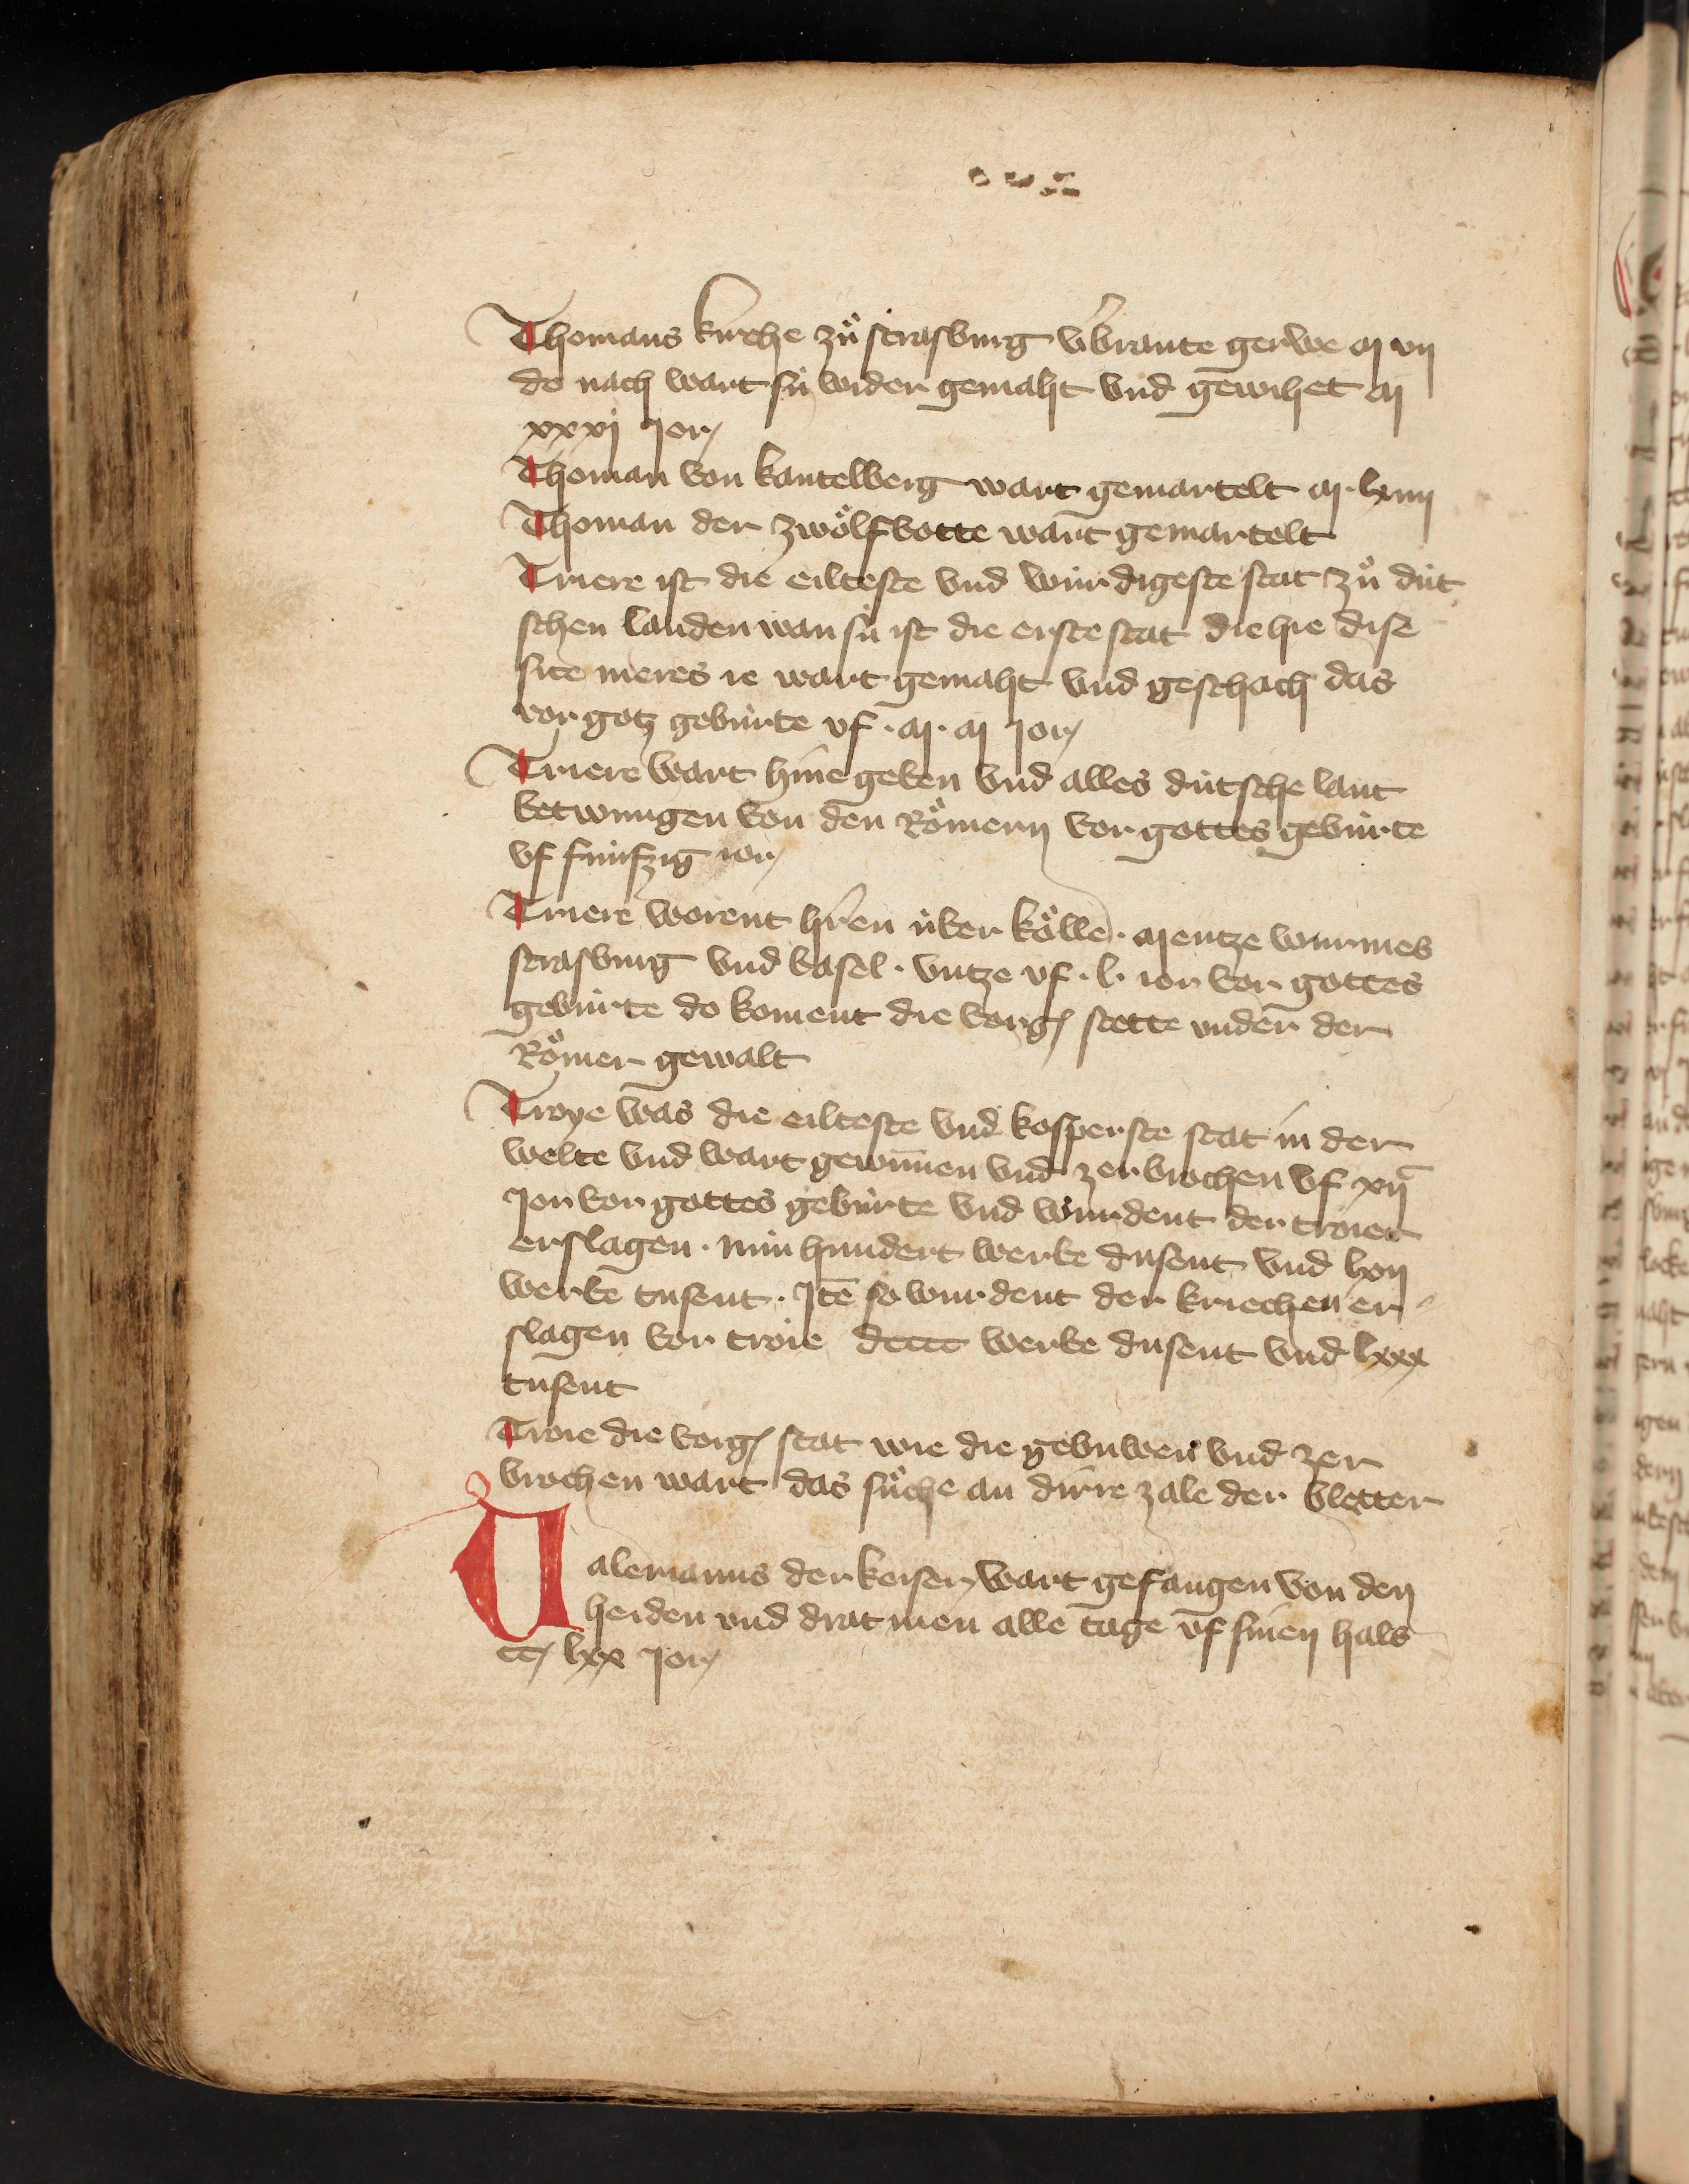 Thomans kirche zuͦ strasburg v̾brante gerwe M vij
do nach wart sú wider gemaht vnd gewihet M
xxxvj Jor
Thoman von kantelberg wart gemartelt M. lxiiij
Thoman der zwoͤlfbotte wart gemartelt
Triere ist die eilteste vnd wúrdigeste stat zuͦ dút
schen landen wan sú ist die erste stat die hie dise
site meres ie wart gemaht vnd geschach das
vor gotz gebúrte vf . M . M Jor
Triere wart hine geben vnd alles dútsche lant
betwungen von den Roͤmern vor gottes gebúrte
vf fúnfzig ior
Triere worent hr̄en úber koͤlle . Mentze wurmes
strasburg vnd basel . vntze vf . l . ior vor gottes
gebúrte do koment die vorḡ stette vnder der
Roͤmer gewalt
Troye was die eilteste vnd kosperste stat in der
welte vnd wart gewūnen vnd zerbrochen vf xijᶜ
Jor vor gottes gebúrte vnd wurdent der troier
erslagen . nún hundert werbe dusent vnd lxvij
werbe tusent . Itē so wurdent der kriechen er
slagen vor troie dcccc werbe dusent vnd lxxx
tusent
Troie die vorḡ stat wie die gebuwen vnd zer
brochen wart das suͤche an dirre zale der bletter
Ualerianus der keiser wart gefangen von den
heiden vnd drat men alle tage vf sinen hals
cc lxx Jor